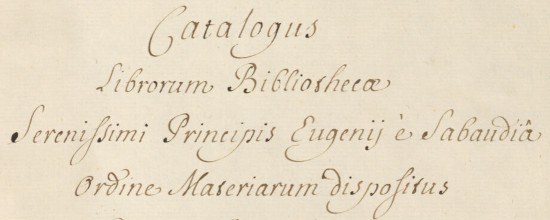 Catalogus
Librorum Bibliothecæ
Serenissimi Principis Eugenij è Sabaudiâ
Ordine Materiarum dispositus